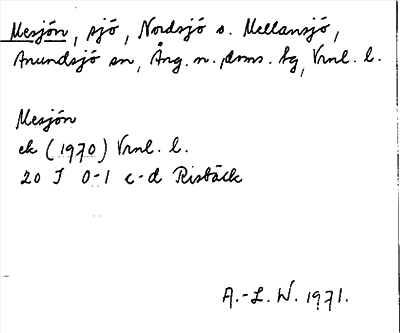 Mesjön, sjö, Nordsjö o. Mellansjö,
Anundsjö sn, Ång. n. dms. hg, Vrnl. l.
Mesjön
ek (1970) Vrnl. l.
20 I 0-1 c-d Risbäck
A.-L. W. 1971.